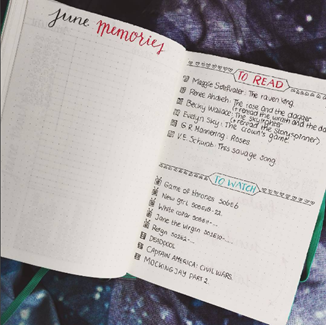 june memories
TO READ
Maggie Stiefvater: The raven king
Renee Ahdieh: The rose and the dagger
(reread the wrath and the da
Becky Wallace: The skylighter
(reread the storyspinner)
Evelyn Sky: The crown's game
G.R Mannering: Roses
V.E. Schwab: This savage song
TO WATCH
Game of thrones
New girl
White collar
Jane the Virgin
Reign
DEADPOOL
CAPTAIN AMERICA: CIVIL WARS
MOCKINGJAY PART 2